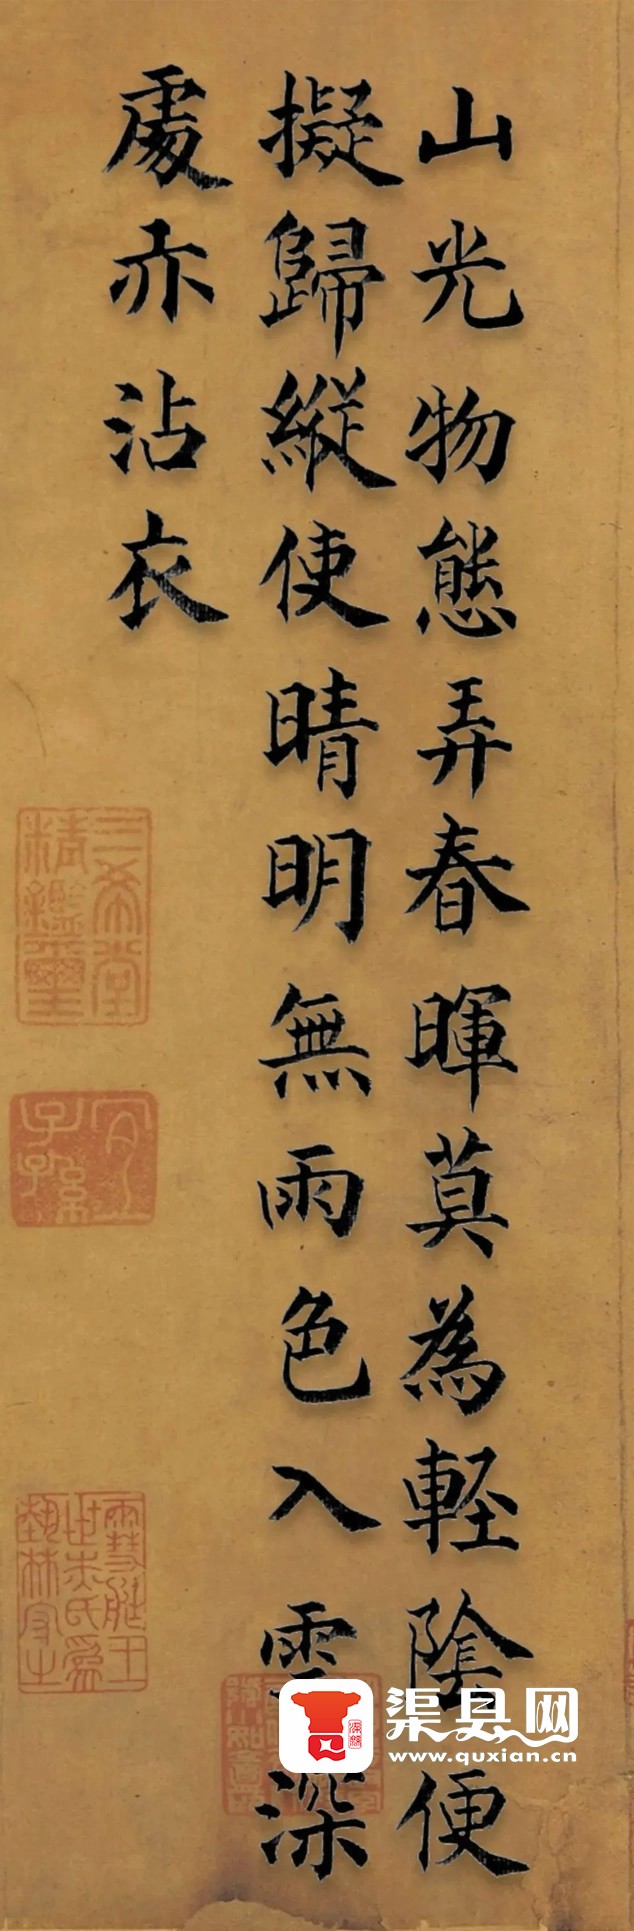 山光物態弄春暉莫為軽陰便
擬歸縱使晴明無雨色入雲深
處亦沾衣
三希堂
精鑑璽
宜
子孫
渠县网
www.quxian.cn